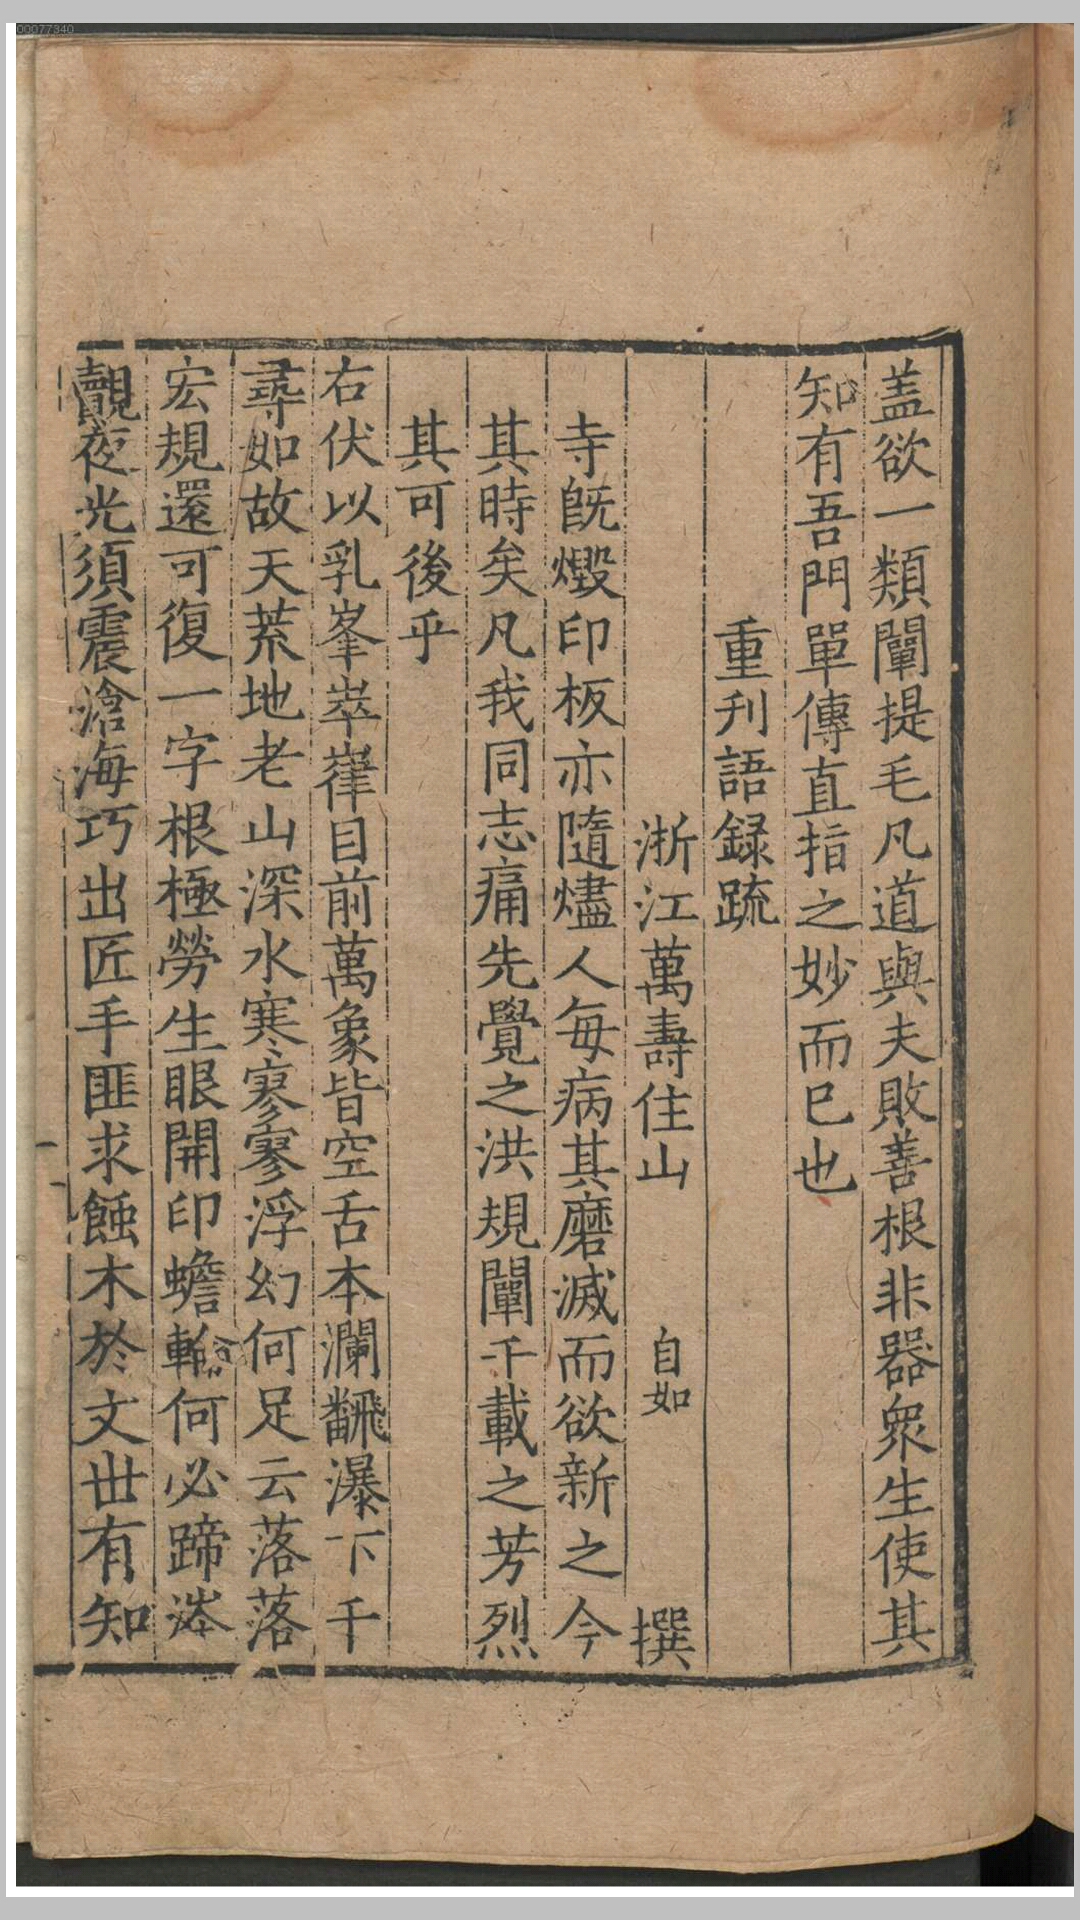 00077340
盖欲一類闡提毛凡道與夫敗善根非器衆生使其
知有吾門單傳直指之妙而巳也
重刋語録䟽
浙江萬壽住山 自如 撰
寺旣燬印板亦隨燼人每病其磨滅而欲新之今
其時矣凡我同志痛先覺之洪規闡千載之芳烈
其可後乎
右伏以乳峯崒嵂目前萬象皆空舌本瀾飜瀑下千
尋如故天荒地老山深水寒寥寥浮幻何足云落落
宏規還可復一字根極勞生眼開印蟾輪何必蹄涔
覿夜光須震滄海巧出匠手匪求蝕木於文丗有知